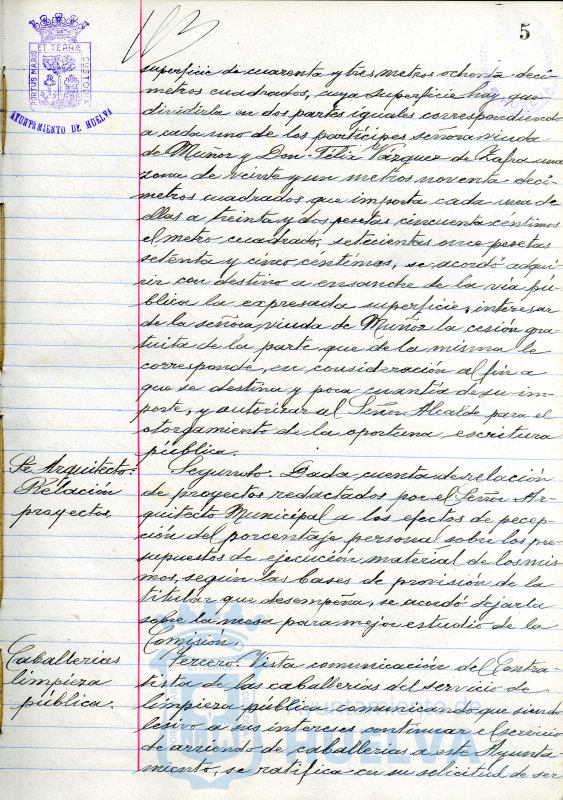 5
PORTUS MARIS ET TERRÆ CUSTODIA
AYUNTAMIENTO DE HUELVA
superficie de cuarenta y tres metros ochenta decí-
metros cuadrados, cuya superficie hay que
dividirla en dos partes iguales correspondiendo
a cada uno de los partícipes señora viuda
de Muñoz y Don Félix Vázquez de Zafra una
zona de veinte y un metros noventa decí-
metros cuadrados que importa cada una de
ellas a treinta y dos pesetas cincuenta céntimos
el metro cuadrado, setecientas once pesetas
setenta y cinco céntimos, se acordó adqui-
rir con destino a ensanche de la vía pú-
blica la expresada superficie, interesar
de la señora viuda de Muñoz la cesión gra-
tuita de la parte que de la misma le
corresponde, en consideración al fin a
que se destina y poca cuantía de su im-
porte, y autorizar al Señor Alcalde para el
otorgamiento de la oportuna escritura
pública.
Sr. Arquitecto=
Relación
proyectos.
Segundo. Dada cuenta de relación
de proyectos redactados por el Señor Ar-
quitecto Municipal a los efectos de percep-
ción del porcentaje personal sobre los pre-
supuestos de ejecución material de los mis-
mos, según las bases de provisión de la
titular que desempeña, se acordó dejarla
sobre la mesa para mejor estudio de la
Comisión.
Caballerías
limpieza
pública.
Tercero. Vista comunicación del Contra-
tista de las caballerías del servicio de
limpieza pública comunicando que siendo
lesivo a sus intereses continuar el servicio
de arriendo de caballerías a este Ayunta-
miento, se ratifica en su solicitud de ser
Ayuntamiento de
HUELVA